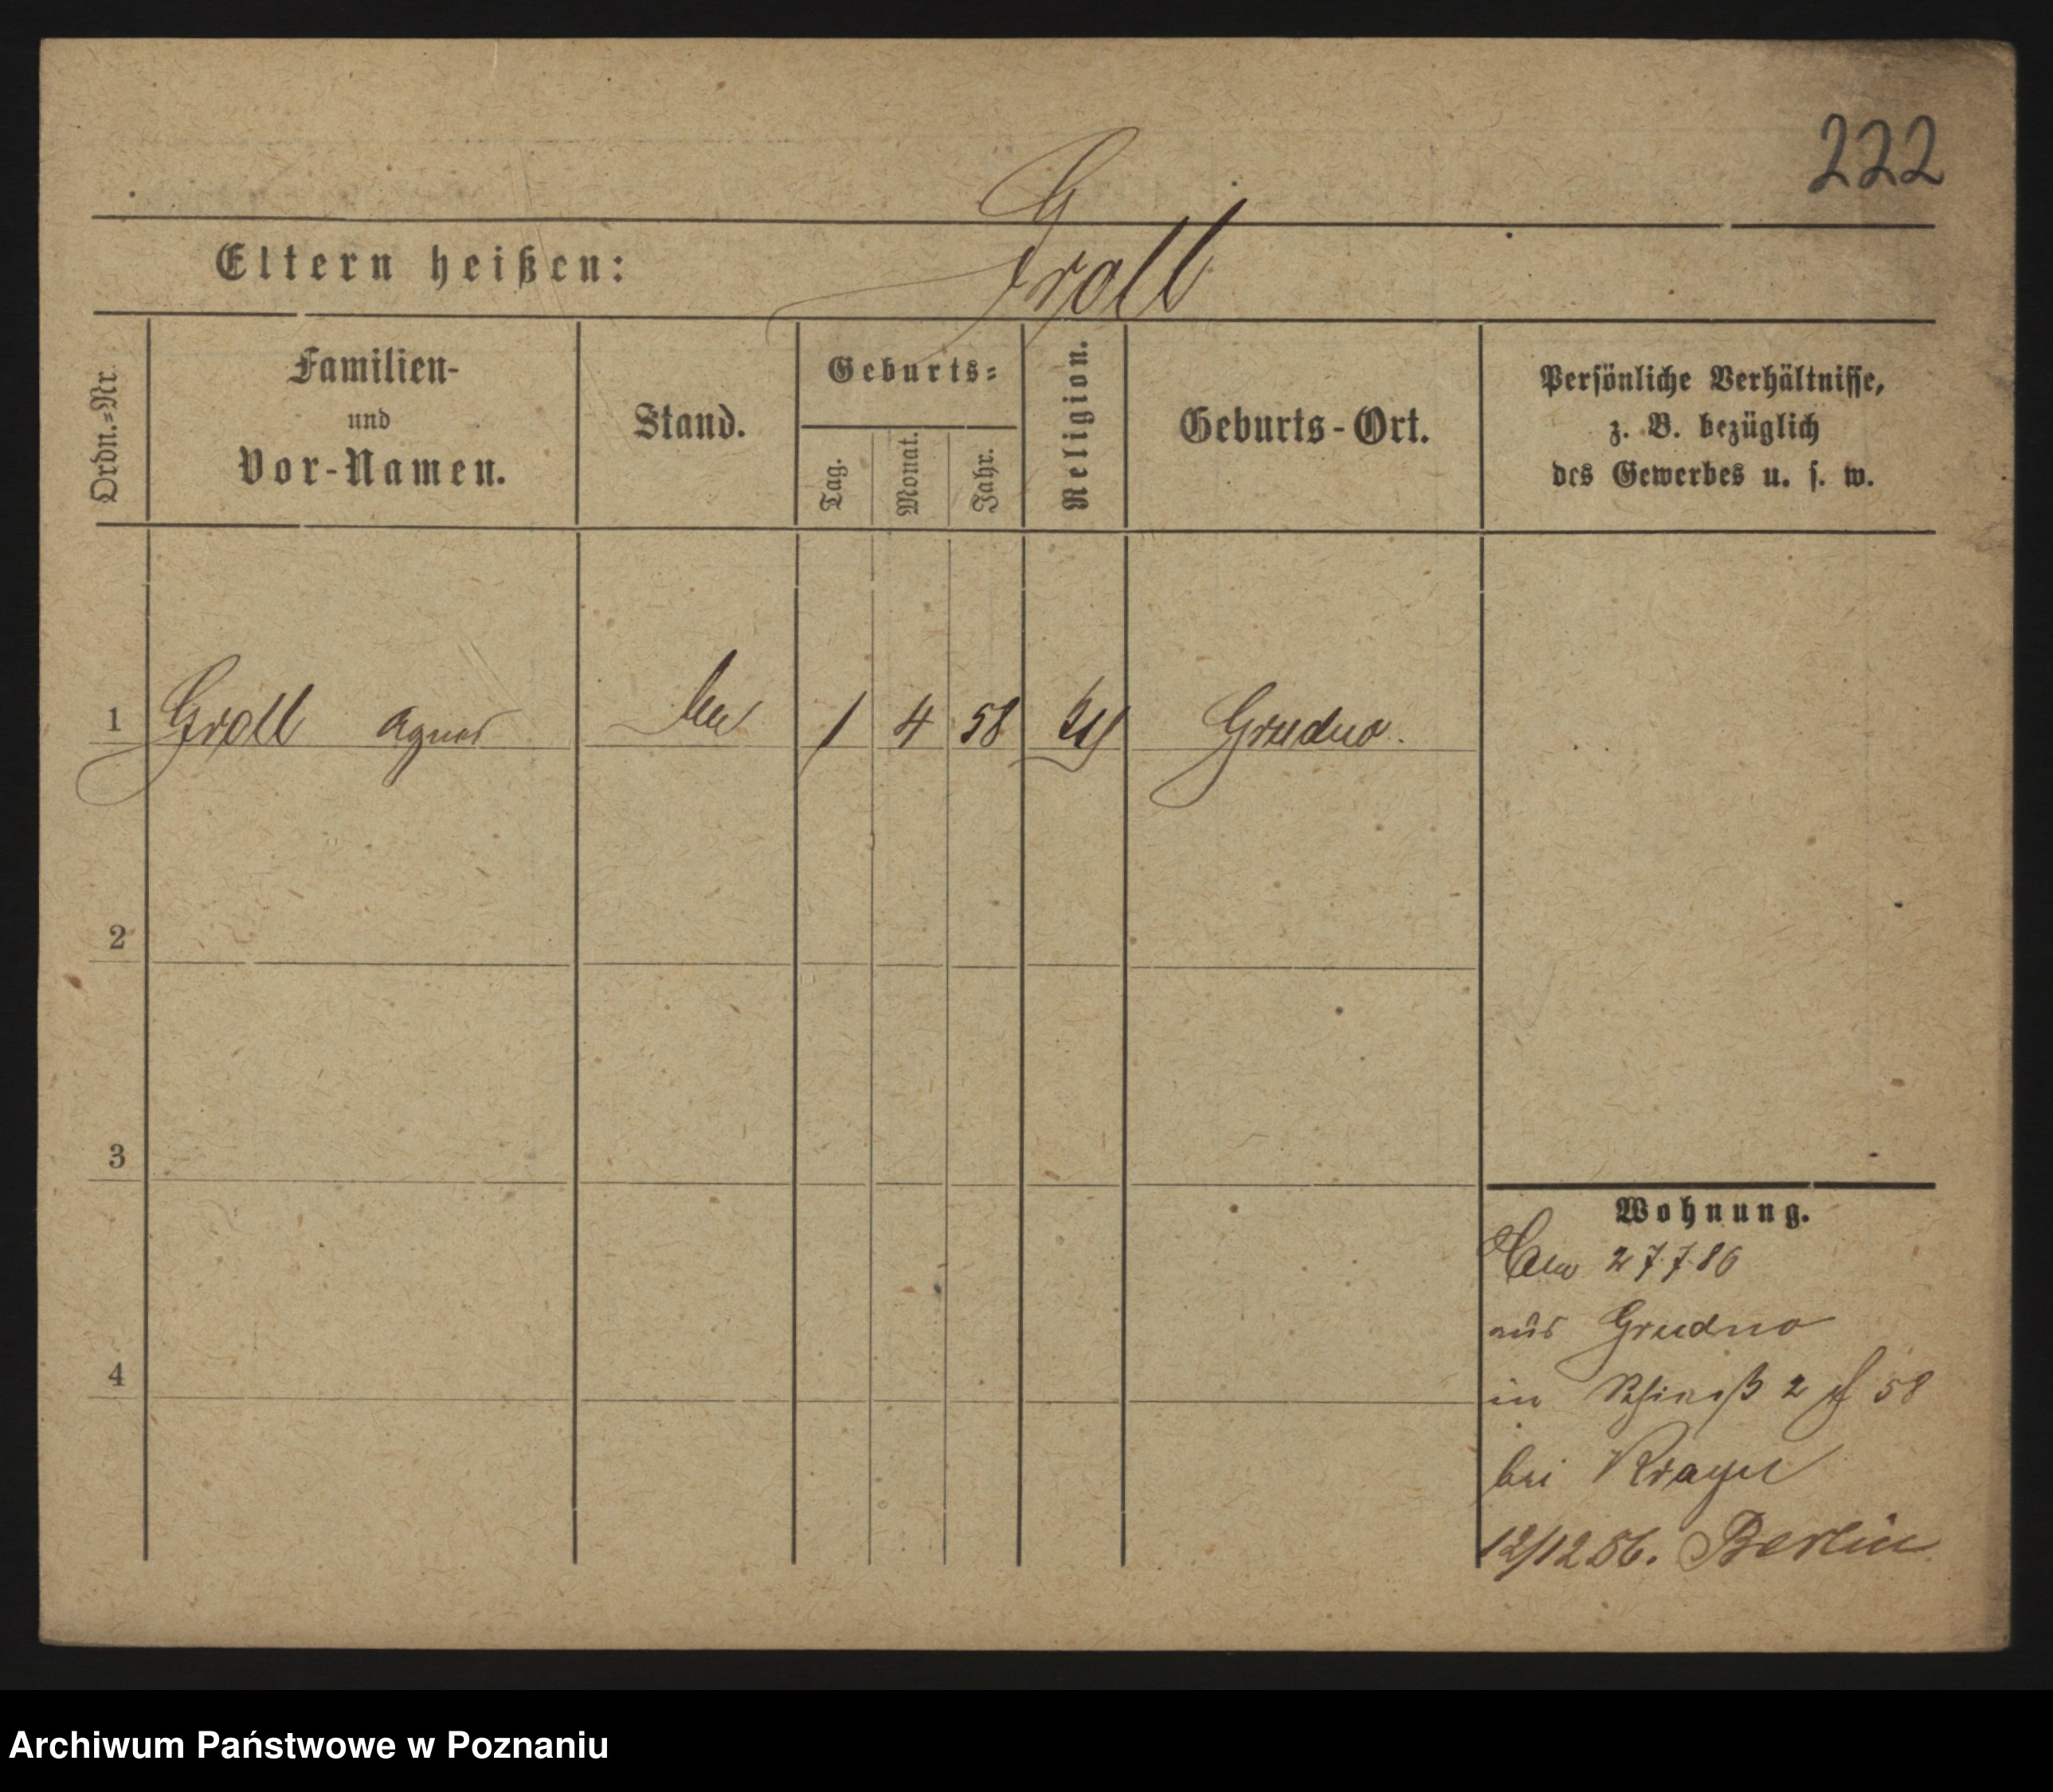 222
Groll
Eltern heißen:
Ordn.=Nr.
Familien-
und
Vor-Namen.
Stand.
Geburts=
Tag.
Monat.
Jahr.
Religion.
Geburts-Ort.
Persönliche Verhältnisse,
z. B. bezüglich
des Gewerbes u. s. w.
1 Groll Agnes 1 4 58 Grudno.
2
3
4
Wohnung.
27.7.86
aus Grudno
in 2 58
bei
12/12 86. Berlin
Archiwum Państwowe w Poznaniu